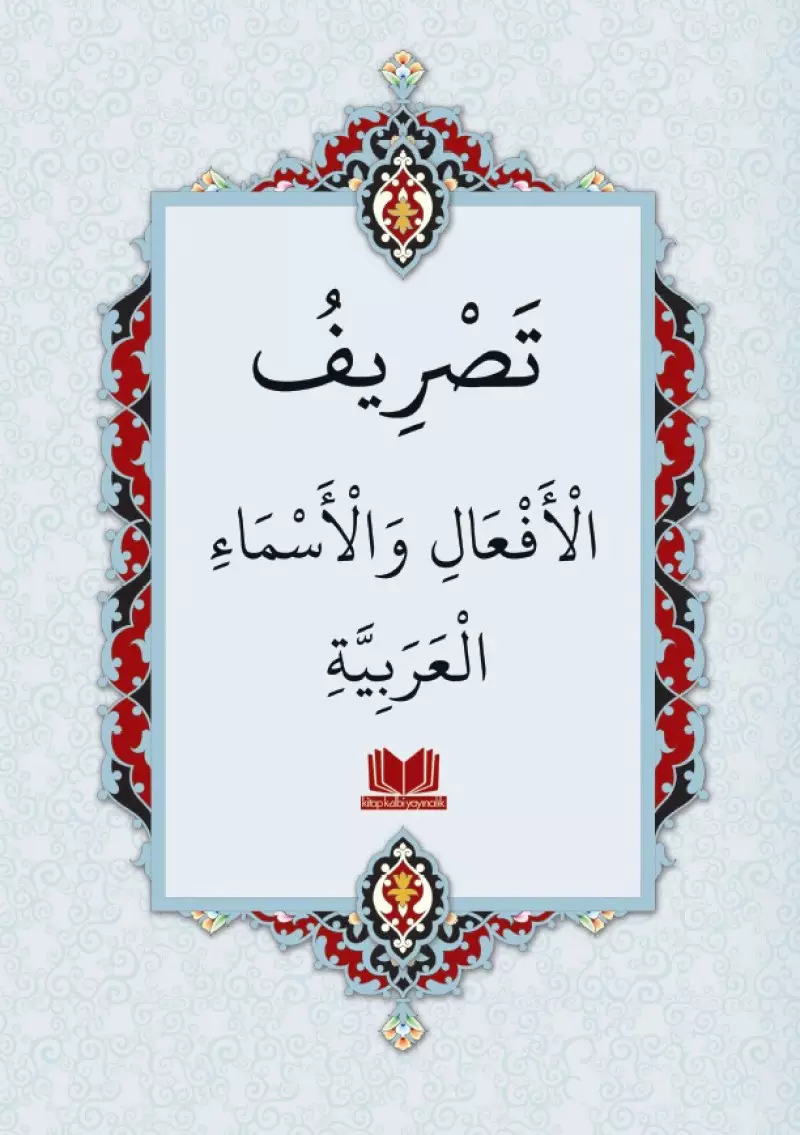 تَصْرِيفُ
الْأَفْعَالِ وَالْأَسْمَاءِ
الْعَرَبِيَّةِ
kitap kalbi yayıncılık